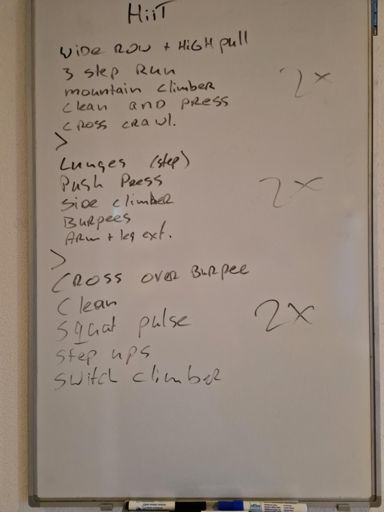 HiiT
Wide Row + High pull
3 step Run
mountain climber
2x
Clean and press
Cross crawl.
>
Lunges (step)
Push Press
2x
Side climber
Burpees
Arm + leg ext.
>
Cross over Burpee
Clean
2x
Squat pulse
Step ups
Switch climber